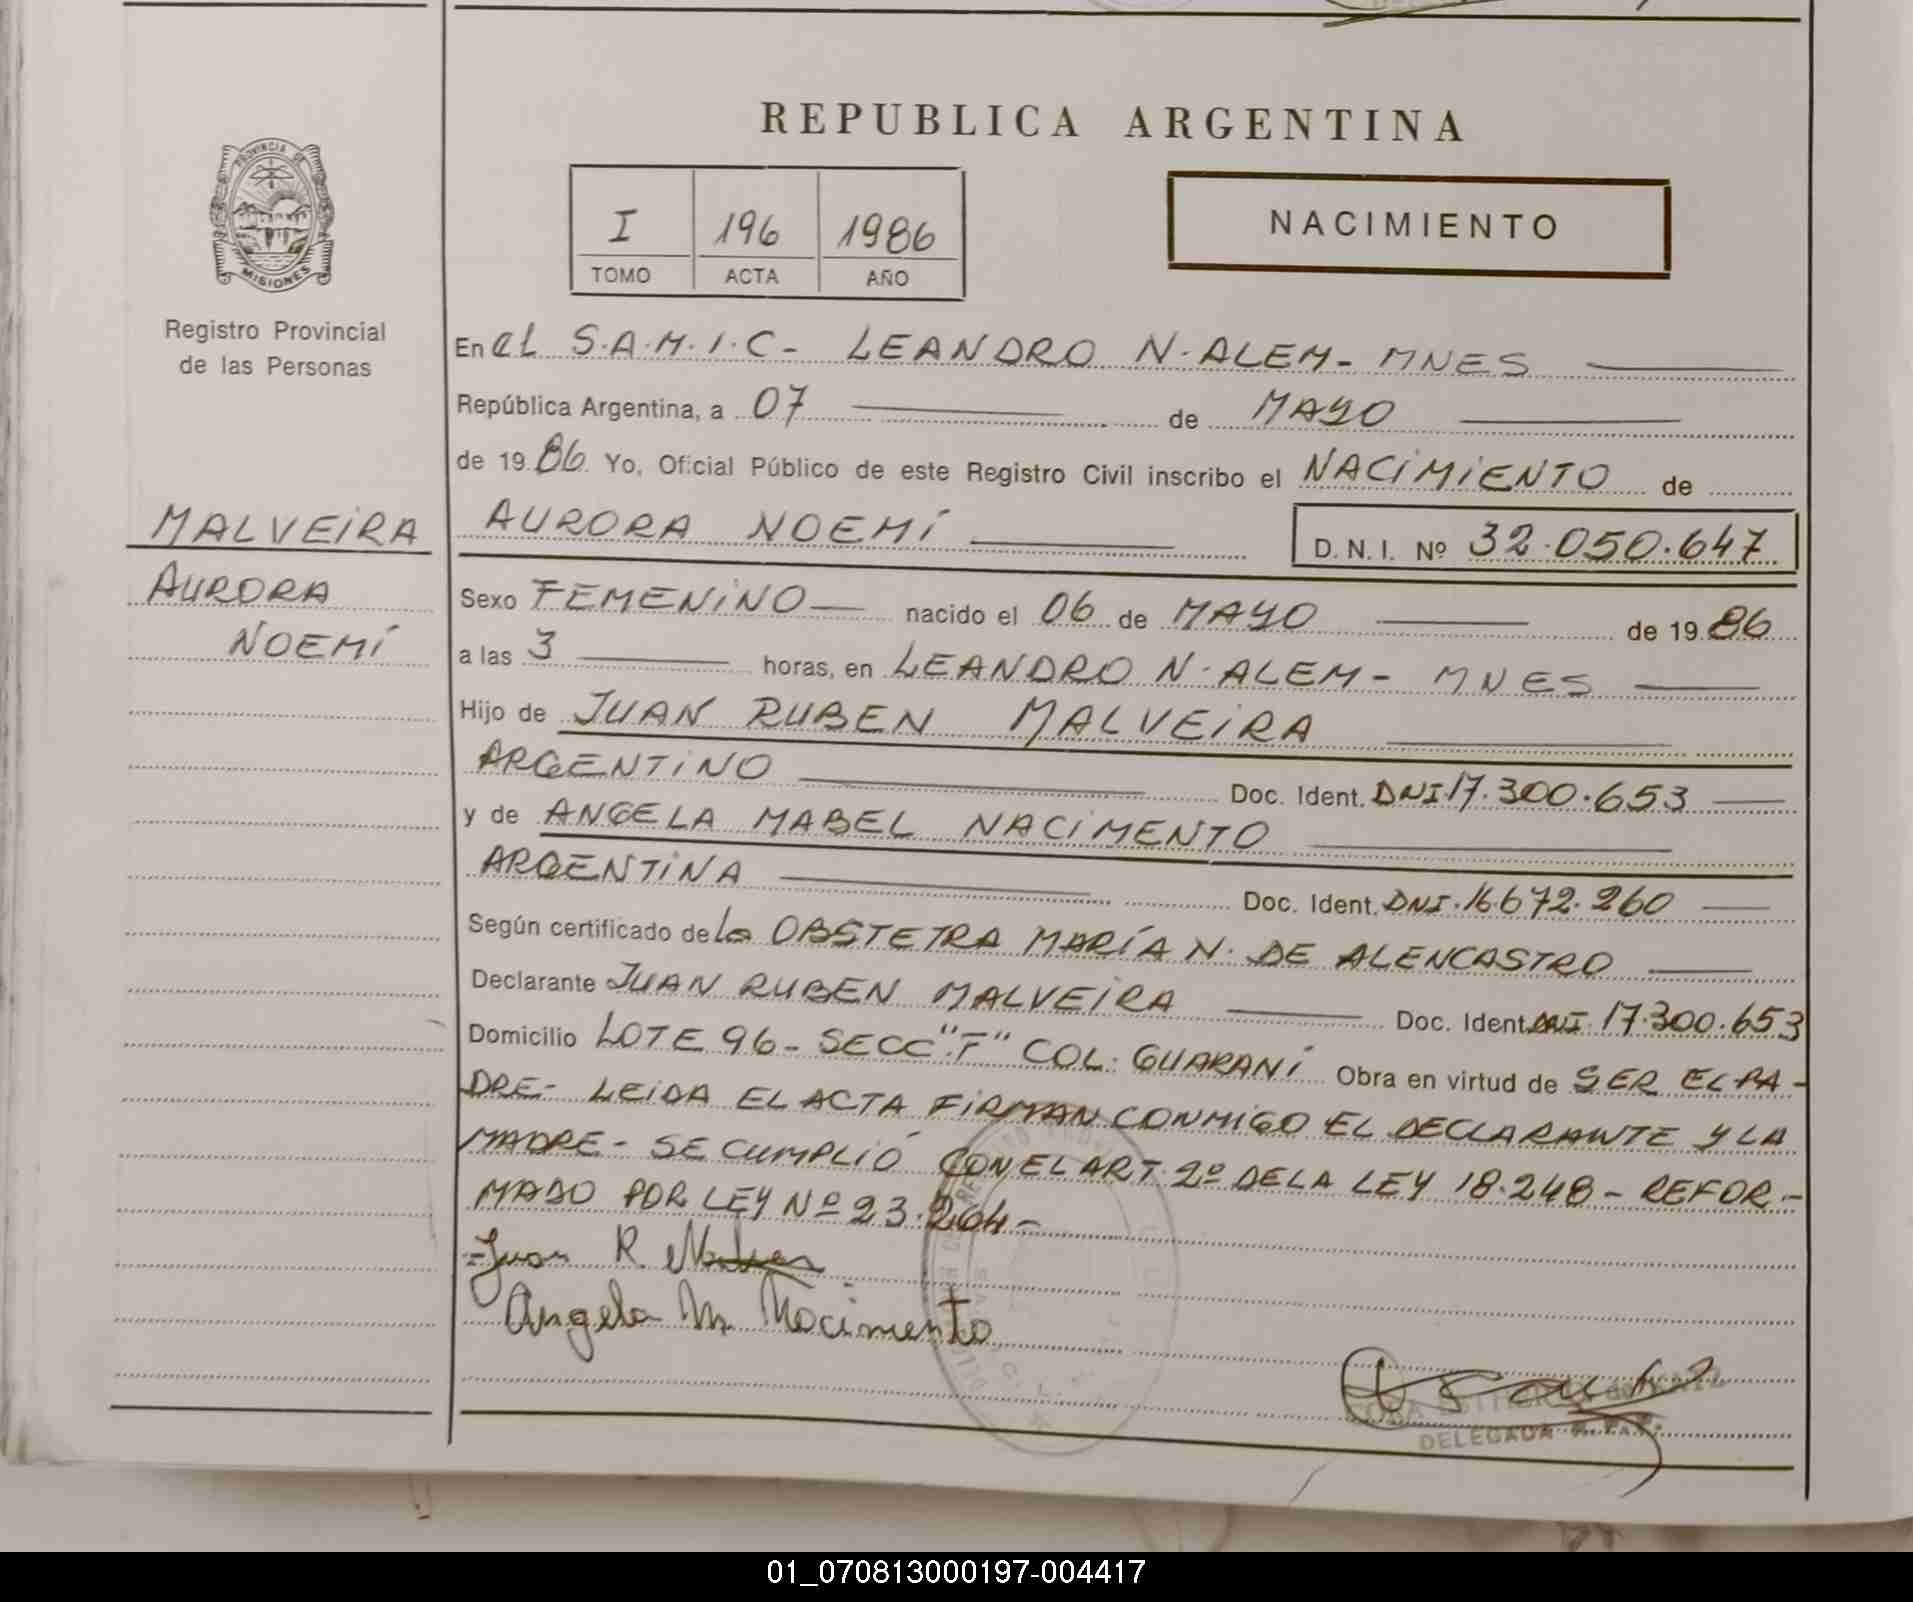 REPUBLICA ARGENTINA
PROVINCIA DE
MISIONES
Registro Provincial
de las Personas
I 196 1986
TOMO ACTA AÑO
NACIMIENTO
En el S.A.M.I.C- LEANDRO N. ALEM- MNES
República Argentina, a 07 de MAYO
de 19 86 Yo, Oficial Público de este Registro Civil inscribo el NACIMIENTO de
MALVEIRA
AURORA
NOEMÍ
AURORA NOEMÍ D. N. I. Nº 32.050.647
Sexo FEMENINO nacido el 06 de MAYO de 19 86
a las 3 horas, en LEANDRO N. ALEM- MNES
Hijo de JUAN RUBEN MALVEIRA
ARGENTINO Doc. Ident. DNI 17.300.653
y de ANGELA MABEL NACIMENTO
ARGENTINA Doc. Ident. DNI. 16.672.260
Según certificado de la OBSTETRA MARÍA N. DE ALENCASTRO
Declarante JUAN RUBEN MALVEIRA Doc. Ident. DNI. 17.300.653
Domicilio LOTE 96- SECC "F" COL. GUARANÍ Obra en virtud de SER EL PA-
DRE- LEIDA EL ACTA FIRMAN CONMIGO EL DECLARANTE Y LA
MADRE- SE CUMPLIÓ CON EL ART. 2º DE LA LEY 18.248- REFOR-
MADO POR LEY Nº 23.264-
Juan R.
Angela M. Nacimento
DELEGADA
01_070813000197-004417